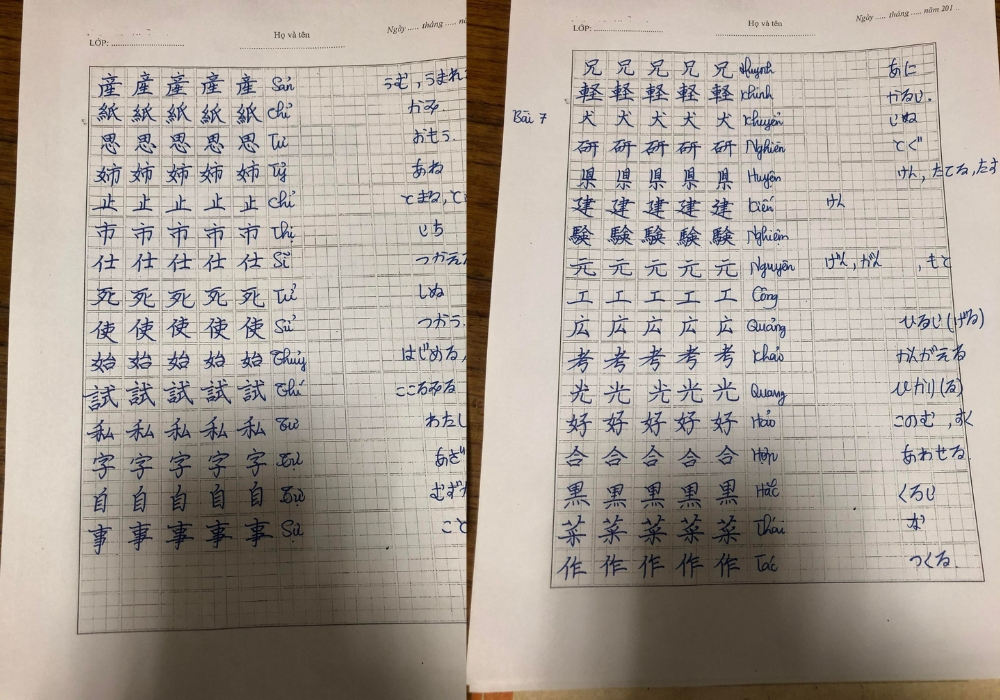 LỚP: ........................
Họ và tên
Ngày ..... tháng .....
産 産 産 産 産 Sản うむ, うまれ
紙 紙 紙 紙 紙 Chỉ かみ
思 思 思 思 思 Tư おもう.
姉 姉 姉 姉 姉 Tỷ あね
止 止 止 止 止 Chỉ とまる, と
市 市 市 市 市 Thị いち
仕 仕 仕 仕 仕 Sĩ つかえ
死 死 死 死 死 Tử しぬ
使 使 使 使 使 Sử つかう.
始 始 始 始 始 Thủy はじめる,
試 試 試 試 試 Thí こころみる
私 私 私 私 私 Tư わたし
字 字 字 字 字 Tự あざ
自 自 自 自 自 Tự
事 事 事 事 事 Sự こと
LỚP: ........................
Họ và tên
Ngày ..... tháng ..... năm 201 ..
兄 兄 兄 兄 兄 Huynh あに
軽 軽 軽 軽 軽 Khinh かるい.
Bài 7 犬 犬 犬 犬 犬 Khuyển いぬ
研 研 研 研 研 Nghiên とぐ
県 県 県 県 県 Huyện けん, たてる, たす
建 建 建 建 建 Kiến けん
験 験 験 験 験 Nghiệm
元 元 元 元 元 Nguyên げん, がん , もと
工 工 工 工 工 Công
広 広 広 広 広 Quảng ひろい (げる)
考 考 考 考 考 Khảo かんがえる
光 光 光 光 光 Quang ひかり (る)
好 好 好 好 好 Hảo このむ , すく
合 合 合 合 合 Hợp あわせる
黒 黒 黒 黒 黒 Hắc くろい
菜 菜 菜 菜 菜 Thái な
作 作 作 作 作 Tác つくる.